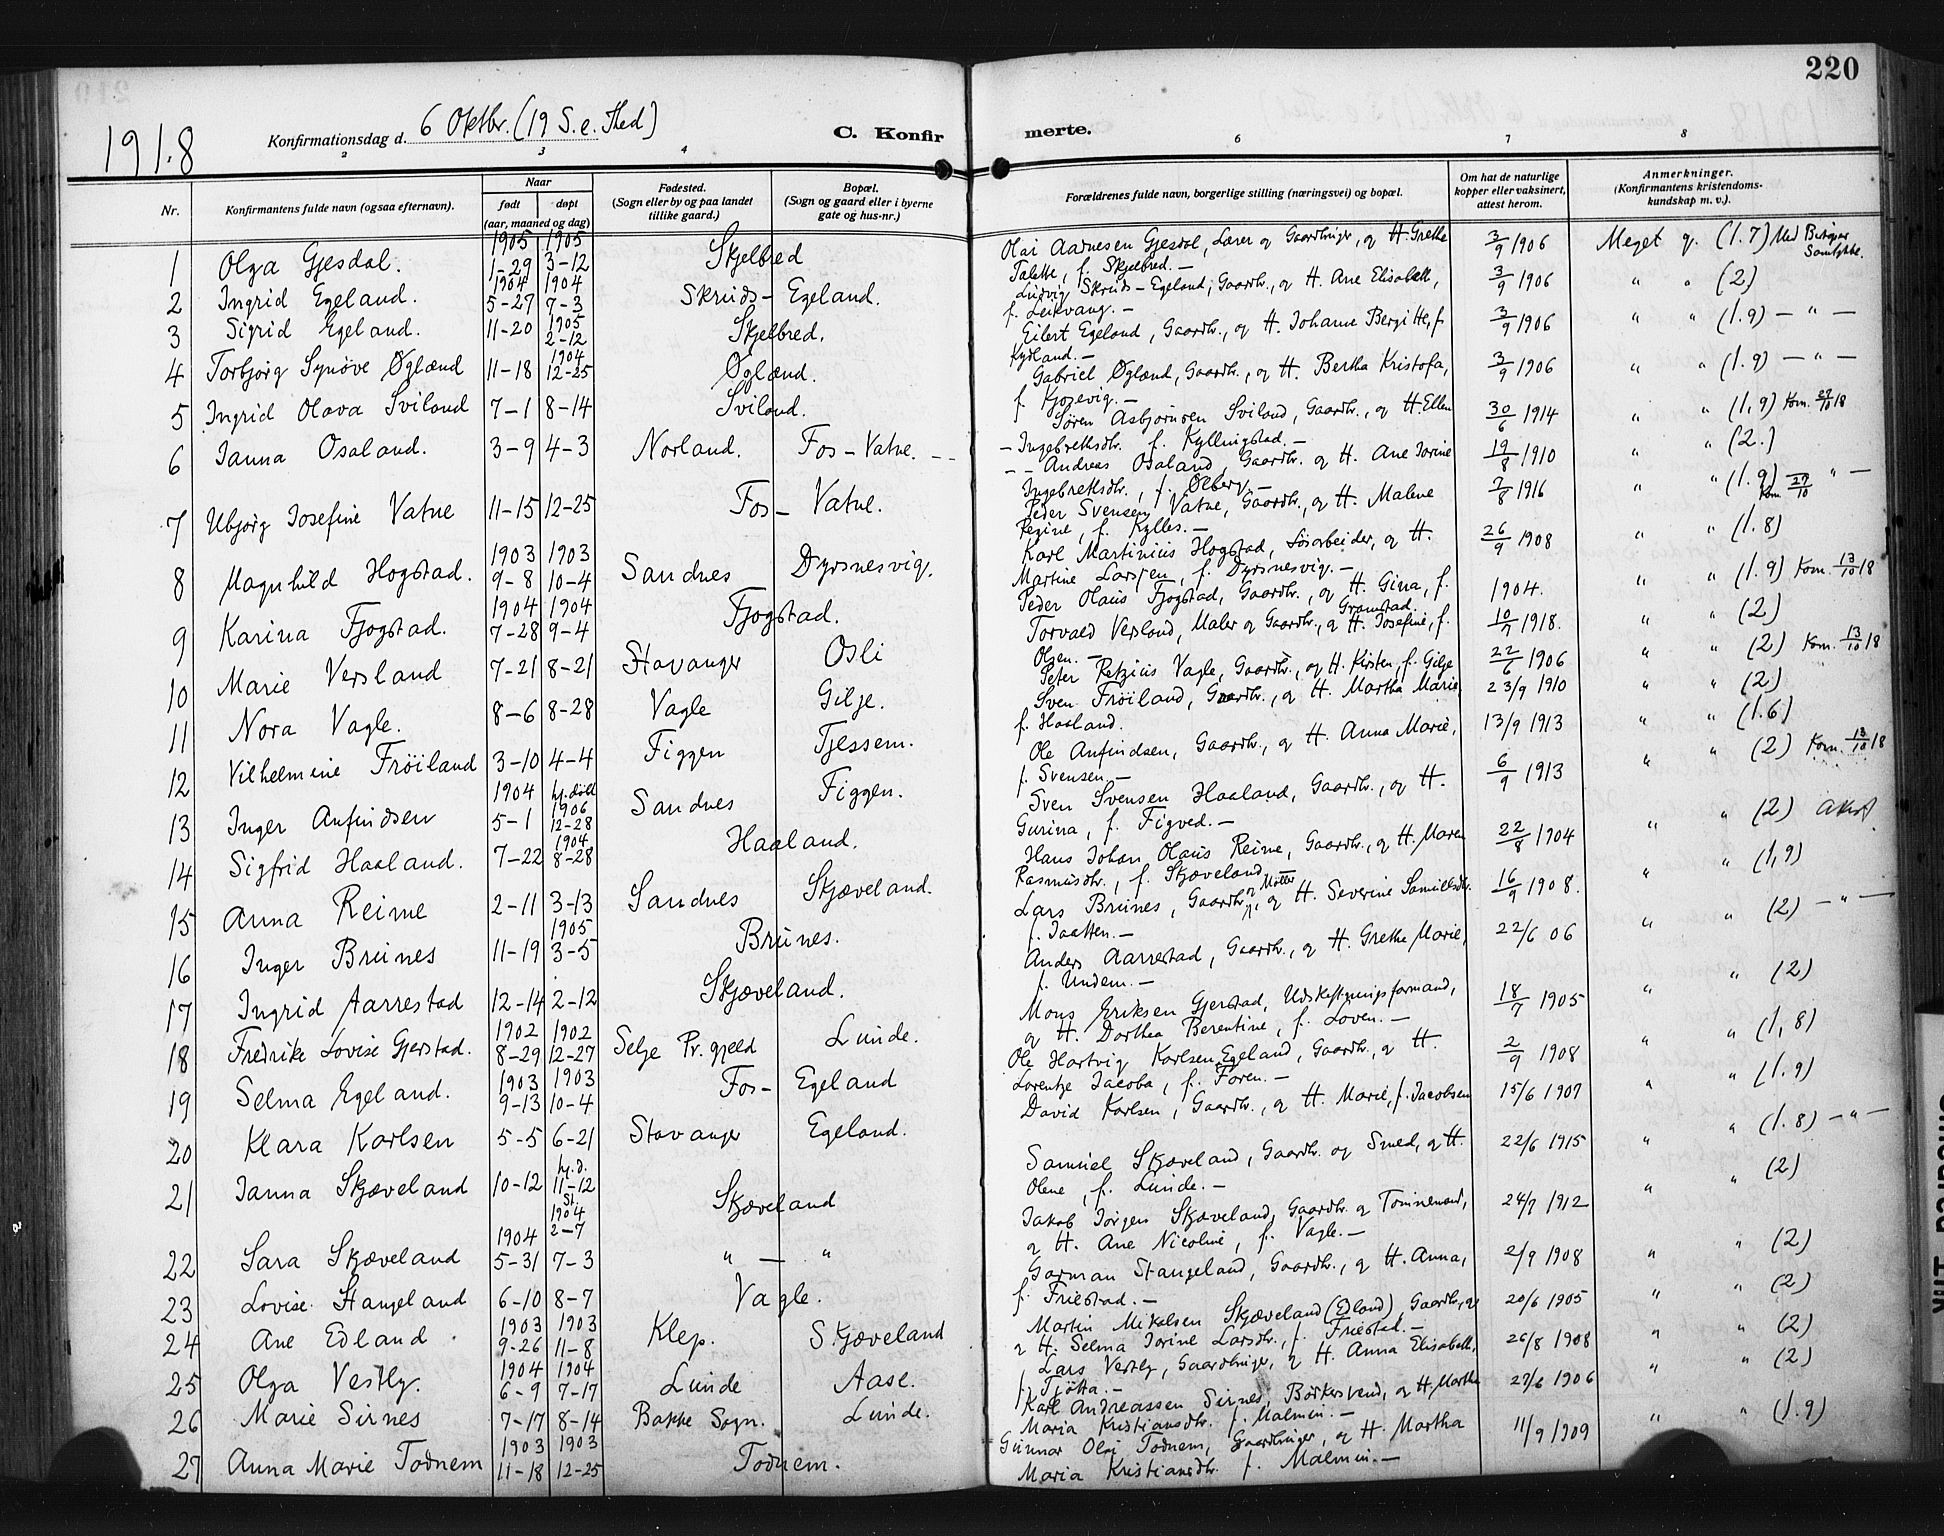 220
1918
Konfirmationsdag d. 6 Oktbr. (19 S. e. Thed)
C. Konfirmerte.
2 3 4 6 7 8
Nr.
Konfirmantens fulde navn (ogsaa efternavn).
Naar
født døpt
(aar, maaned og dag)
Fødested.
(Sogn eller by og paa landet
tillike gaard.)
Bopæl.
(Sogn og gaard eller i byerne
gate og hus-nr.)
Forældrenes fulde navn, borgerlige stilling (næringsvei) og bopæl.
Om hat de naturlige
kopper eller vaksinert,
attest herom.
Anmerkninger.
(Konfirmantens kristendoms-
kundskap m. v.).
1905 1905
1 Olga Gjesdal. 1-29 3-12 Skjelbred
Olai Aadnesen Gjesdal, Lærer og Gaardbruger, og H. Grethe
Talette, f. Skjelbred. —
3/9 1906 Meget g. (1.7) Med Bisgops Samtykke.
1904 1904
2 Ingrid Egeland. 5-27 7-3 Skruds- Egeland.
Ludvig Skruds-Egeland, Gaardb., og H. Ane Elisabeth,
f. Leikvang. —
3/9 1906 " " (2)
1905
3 Sigrid Egeland. 11-20 2-12 Skjelbred.
Eilert Egeland, Gaardb., og H. Johanne Bergitte, f.
Kydland. —
3/9 1906 " " (1.9) — " —
1904
4 Torbjørg Synøve Øglænd 11-18 12-25 Øglænd.
Gabriel Øglænd, Gaardb., og H. Bertha Kristofa,
f. Gjozevig. —
3/9 1906 " " (1.9) — " —
5 Ingrid Olava Sviland 7-1 8-14 Sviland.
Søren Asbjørnsen Sviland, Gaardb., og H. Ellen
Ingebretsdtr. f. Kyllingstad. —
30/6 1914 " " (1,9) Kom. 27/10 18
6 Janna Osaland. 3-9 4-3 Norland. Fos-Vatne.
Andreas Osaland, Gaardb. og H. Ane Torine
Ingebretsdtr., f. Ølberg. —
19/8 1910 " " (2.)
7 Ubjørg Josefine Vatne 11-15 12-25 Fos- Vatne.
Peder Svensen Vatne, Gaardb., og H. Malene
Regine, f. Kylles. —
7/8 1916 " " (1.9) " — Kom. 27/10
1903 1903
8 Magnhild Hogstad. 9-8 10-4 Sandnes Dyrsnesvig.
Karl Martinius Hogstad, Løsarbeider, og H.
Martine Larsen, f. Dyrsnesvig. —
26/9 1908 " " (1.8)
1904 1904
9 Karina Fjogstad. 7-28 9-4 Fjogstad.
Peder Olaus Fjogstad, Gaardb., og H. Gina, f.
Gramstad.
1904. " " (1.9) Kom. 13/10 18
10 Marie Versland 7-21 8-21 Stavanger Osli
Torvald Versland, Maler og Gaardb., og H. Josefine, f.
Olsen. —
10/7 1918. " " (2)
11 Nora Vagle. 8-6 8-28 Vagle Gilje.
Peter Retzius Vagle, Gaardb., og H. Kirsten, f. Gilje
22/6 1906 " " (2) Kom. 13/10 18
12 Vilhelmine Frøiland 3-10 4-4 Figgen Tjessem.
Sven Frøiland, Gaardb., og H. Martha Marie,
f. Haaland.
23/9 1910 " " (2)
1904 hj.døbt 1906
13 Inger Anfindsen 5-1 12-28 Sandnes Figgen.
Ole Anfindsen, Gaardb., og H. Anna Marie,
f. Svensen —
13/9 1913 " " (1.6)
1904
14 Sigfrid Haaland. 7-22 8-28 Haaland.
Sven Svensen Haaland, Gaardb., og H.
Gurina, f. Figved. —
6/9 1913 " " (2) Kom. 13/10 18
15 Anna Reime 2-11 3-13 Sandnes Skjæveland.
Hans Johan Olaus Reime, Gaardb., og H. Maren
Rasmusdtr., f. Skjæveland —
22/8 1904 " " (2)
1905
16 Inger Brunes 11-19 3-5 Brunes.
Lars Brunes, Gaardb. og Møller, og H. Severine Samuelsdtr.
f. Jaatten. —
16/9 1908. " " (1,9)
17 Ingrid Aarrestad 12-14 2-12 Skjæveland.
Anders Aarrestad, Gaardb., og H. Grethe Marie,
f. Undem. —
22/6 06 " " (2) — " —
1902 1902
18 Fredrike Lovise Gjerstad. 8-29 12-27 Selje Pr.gjeld Lunde.
Mons Eriksen Gjerstad, Udskiftningsformand,
og H. Dorthea Berentine, f. Loven. —
18/7 1905 " " (2)
1903 1903
19 Selma Egeland. 9-13 10-4 Fos- Egeland
Ole Hartvig Karlsen Egeland, Gaardb., og H.
Lorentze Jacoba, f. Foren. —
2/9 1908 " " (1,8)
20 Klara Karlsen 5-5 6-21 Stavanger Egeland.
David Karlsen, Gaardb., og H. Marie, f. Jacobsen
15/6 1907 " " (1.9)
hj.d.
21 Janna Skjæveland 10-12 11-12 St. 1904 2-7 Skjæveland
Samuel Skjæveland, Gaardb. og Smed, og H.
Olene, f. Lunde. —
22/6 1915 " " (1.8) — " —
1904
22 Sara Skjæveland 5-31 7-3 " — "
Jakob Jørgen Skjæveland, Gaardb. og Tømmermand,
og H. Ane Nicoline, f. Vagle. —
24/7 1912 " " (2)
23 Lovise Stangeland 6-10 8-7 Vagle.
Gorman Stangeland, Gaardb., og H. Anna,
f. Friestad. —
2/9 1908 " " (2)
1903 1903
24 Ane Edland 9-26 11-8 Klep. Skjæveland
Martin Mikalsen Skjæveland (Edland), Gaardb, og
H. Selma Torine Larsdtr., f. Friestad. —
20/6 1905 " " (2)
1904 1904
25 Olga Vestly. 6-9 7-17 Lunde Aase.
Lars Vestly, Gaardbruger, og H. Anna Elisabeth,
f. Tjøtta. —
26/8 1908 " " (2)
26 Marie Sirnes 7-17 8-14 Bakke Sogn. Lunde.
Karl Andreassen Sirnes, Barkersvend, og H. Martha
Maria Kristiansdtr. f. Malmin. —
27/6 1906 " " (2)
1903 1903
27 Anna Marie Todnem 11-18 12-25 Todnem.
Gunnar Olai Todnem, Gaardbruger, og H. Martha
Maria Kristiansdtr. f. Malmin. —
11/9 1909 " " (1.9)